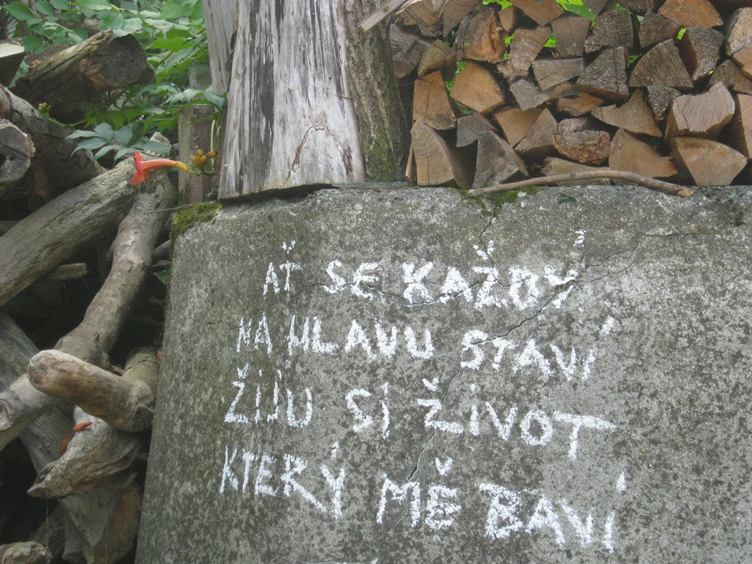 AŤ SE KAŽDÝ
NA HLAVU STAVÍ
ŽIJU SI ŽIVOT
KTERÝ MĚ BAVÍ